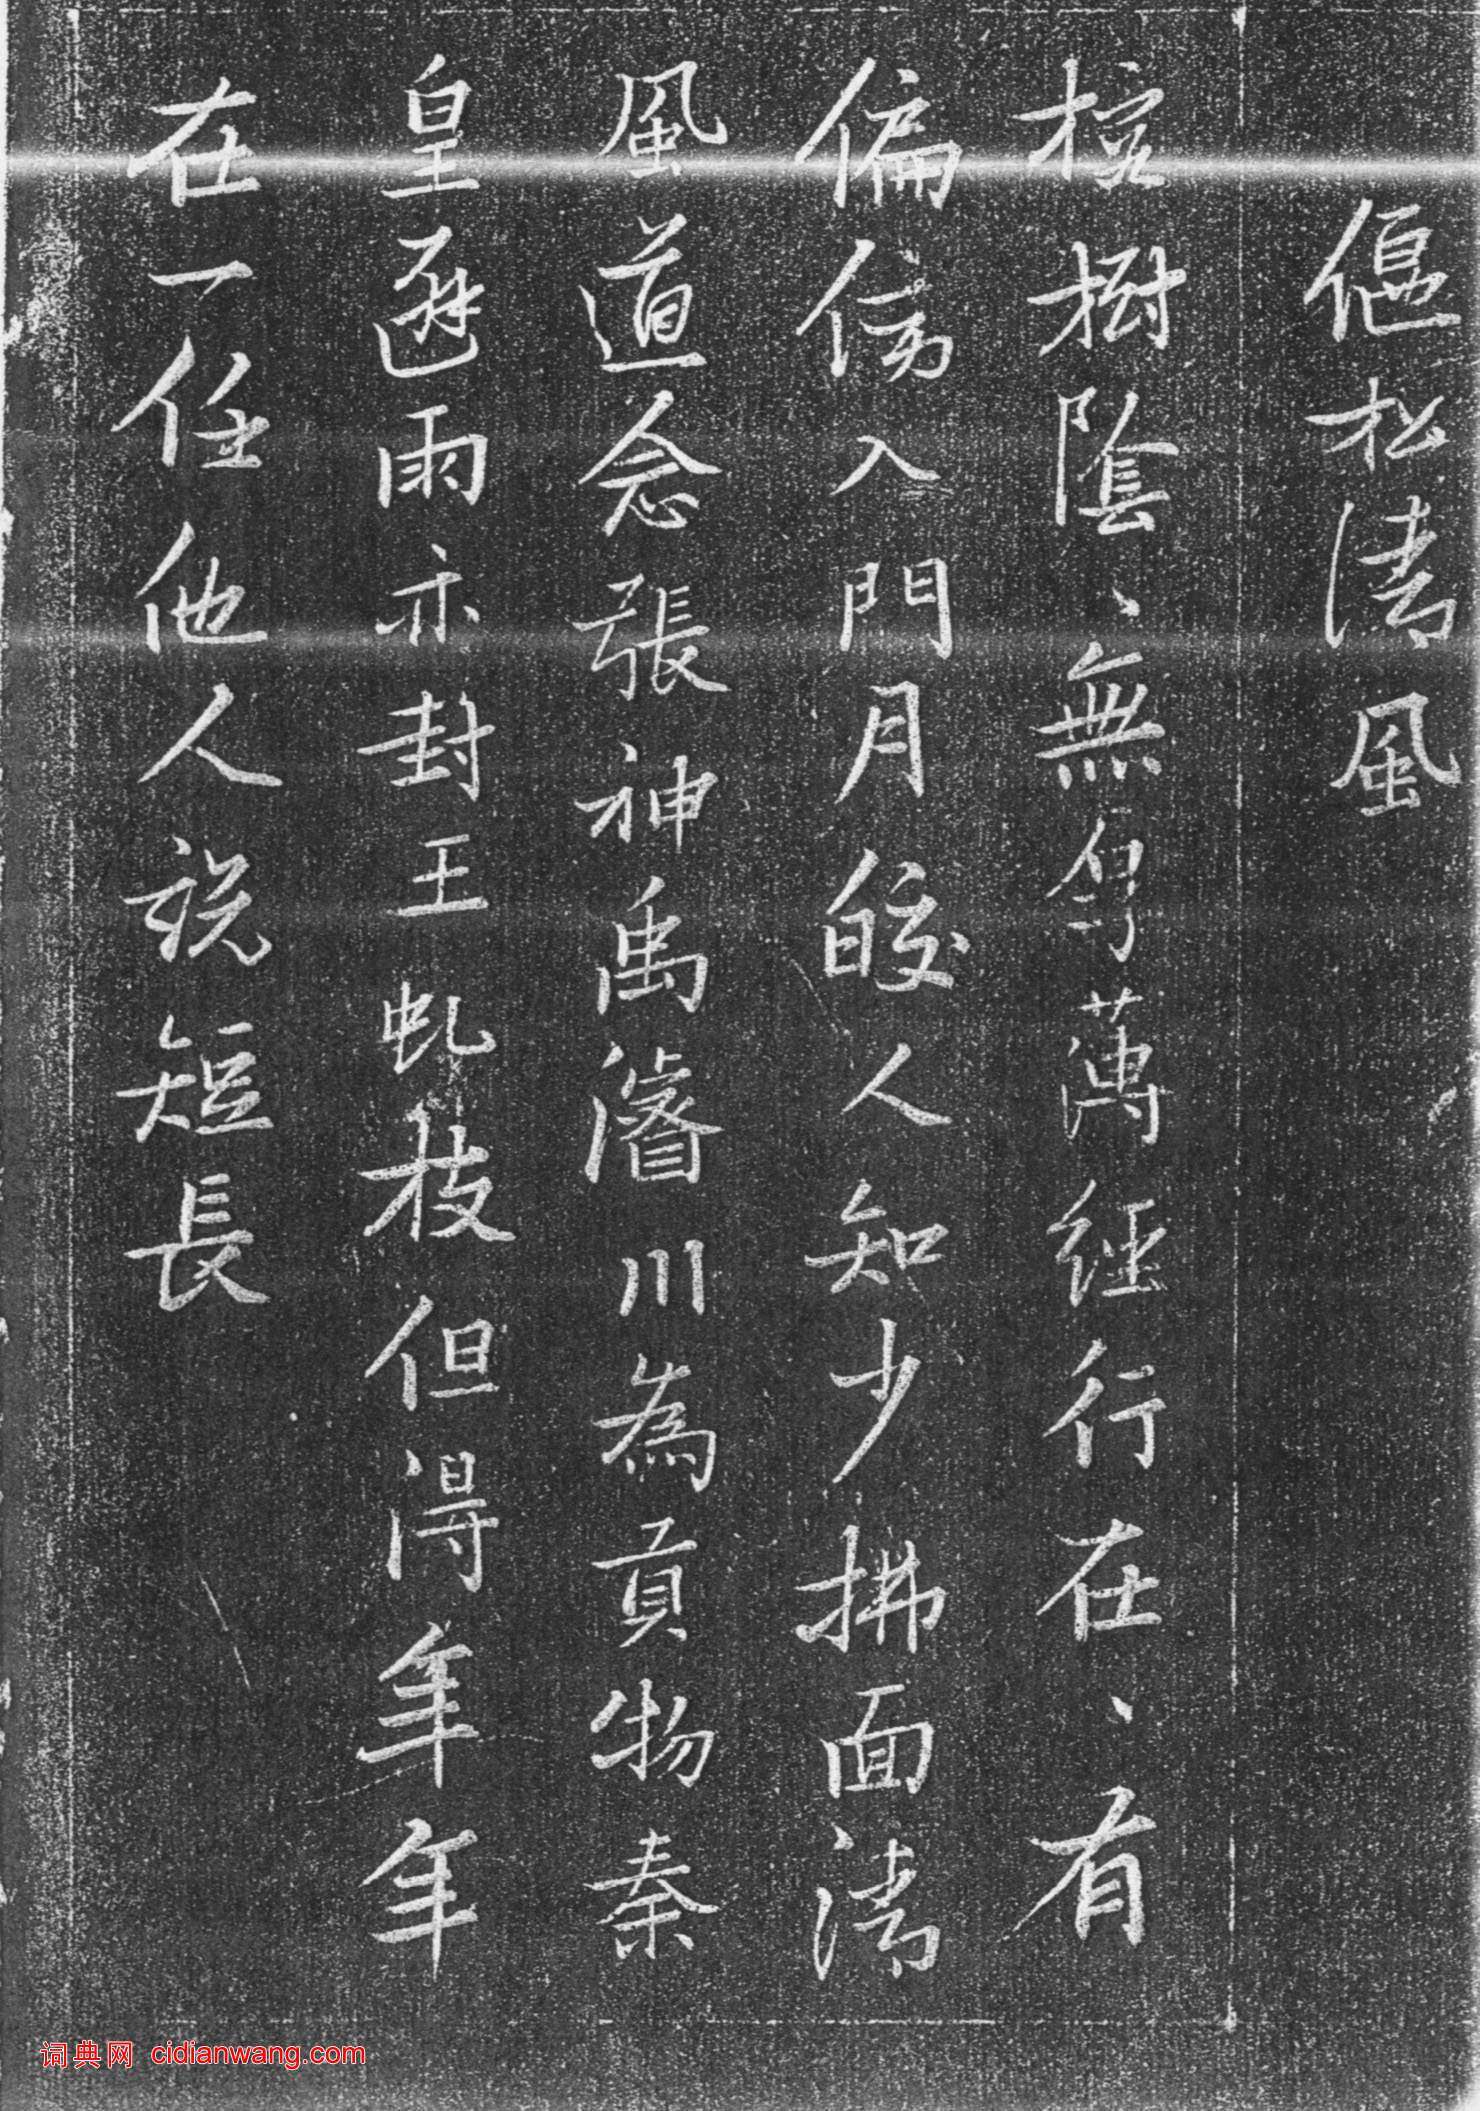 偃松清風
樹陰、無萬經行在、有
偏傍入門月皎人知少拂面清
風道念張神禹濬川為貢物秦
皇避雨亦封王虬枝但得年年
在一任他人說短長
词典网 cidianwang.com